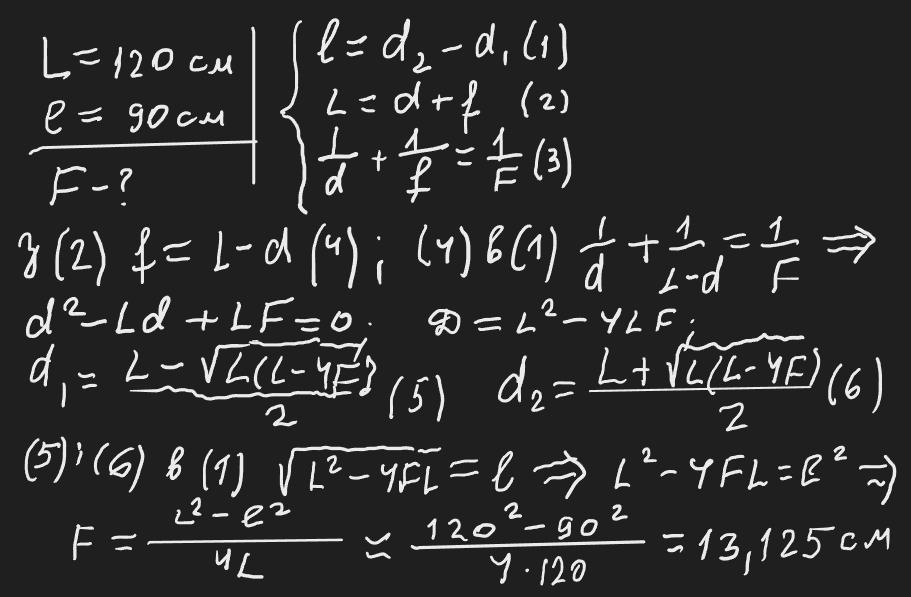 L = 120 см
ℓ = 90 см
F - ?
ℓ = d₂ - d₁ (1)
L = d + f (2)
1/d + 1/f = 1/F (3)
з (2) f = L - d (4); (4) в (1) 1/d + 1/(L-d) = 1/F ⇒
d² - Ld + LF = 0; D = L² - 4LF;
d₁ = (L - √(L(L-4F)))/2 (5) d₂ = (L + √(L(L-4F)))/2 (6)
(5); (6) в (1) √(L² - 4FL) = ℓ ⇒ L² - 4FL = ℓ² ⇒
F = (L² - ℓ²)/(4L) ≈ (120² - 90²)/(4·120) = 13,125 см